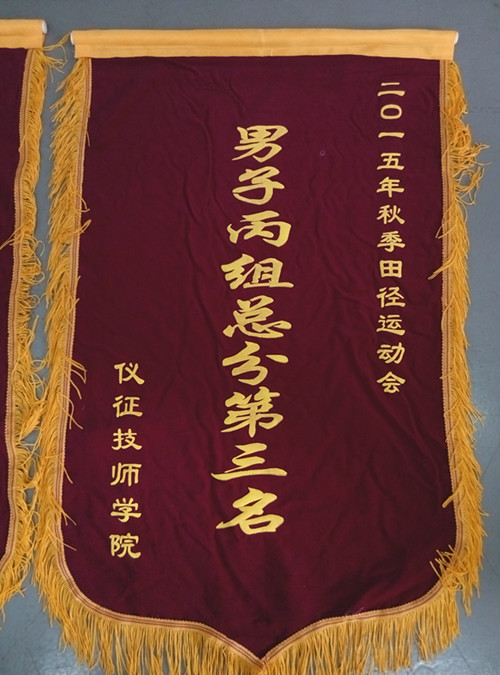 二〇一五年秋季田径运动会
男子丙组总分第三名
仪征技师学院